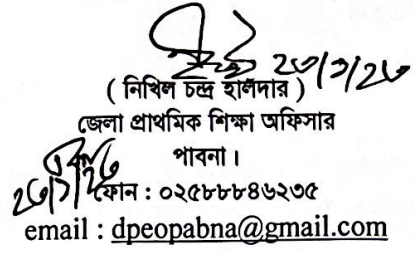 ২৩/১/২৩
( নিখিল চন্দ্র হালদার )
জেলা প্রাথমিক শিক্ষা অফিসার
পাবনা ।
২৩/১/২৩
ফোন : ০২৫৮৮৮৪৬২৩৫
email : dpeopabna@gmail.com